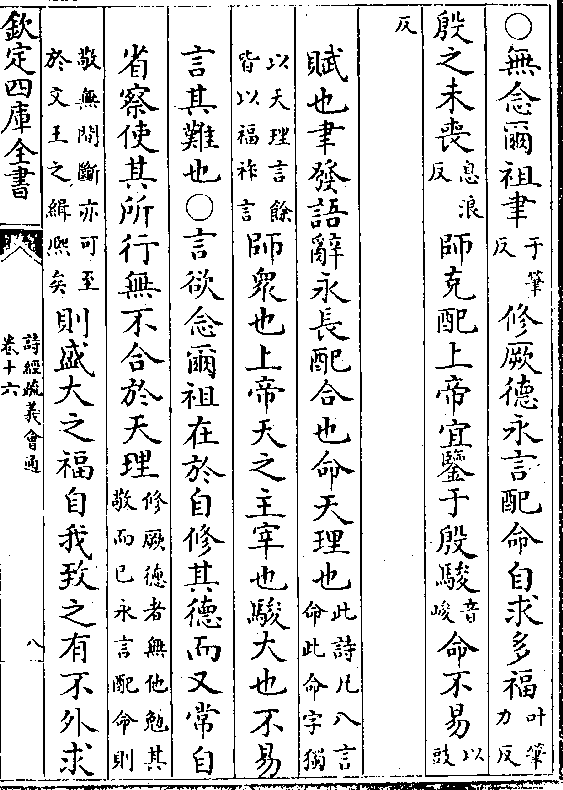 ○無念爾祖聿于筆反修厥德永言配命自求多福叶筆力反
殷之未喪息浪反師克配上帝宜鑒于殷駿音峻命不易以豉
反
賦也聿發語辭永長配合也命天理也此詩凡八言命此命字獨
以天理言餘皆以福祚言師衆也上帝天之主宰也駿大也不易
言其難也○言欲念爾祖在於自修其德而又常自
省察使其所行無不合於天理修厥德者無他勉其敬而已永言配命則
敬無間斷亦可至於文王之緝熙矣則盛大之福自我致之有不外求
欽定四庫全書
詩經疏義會通
卷十六
八